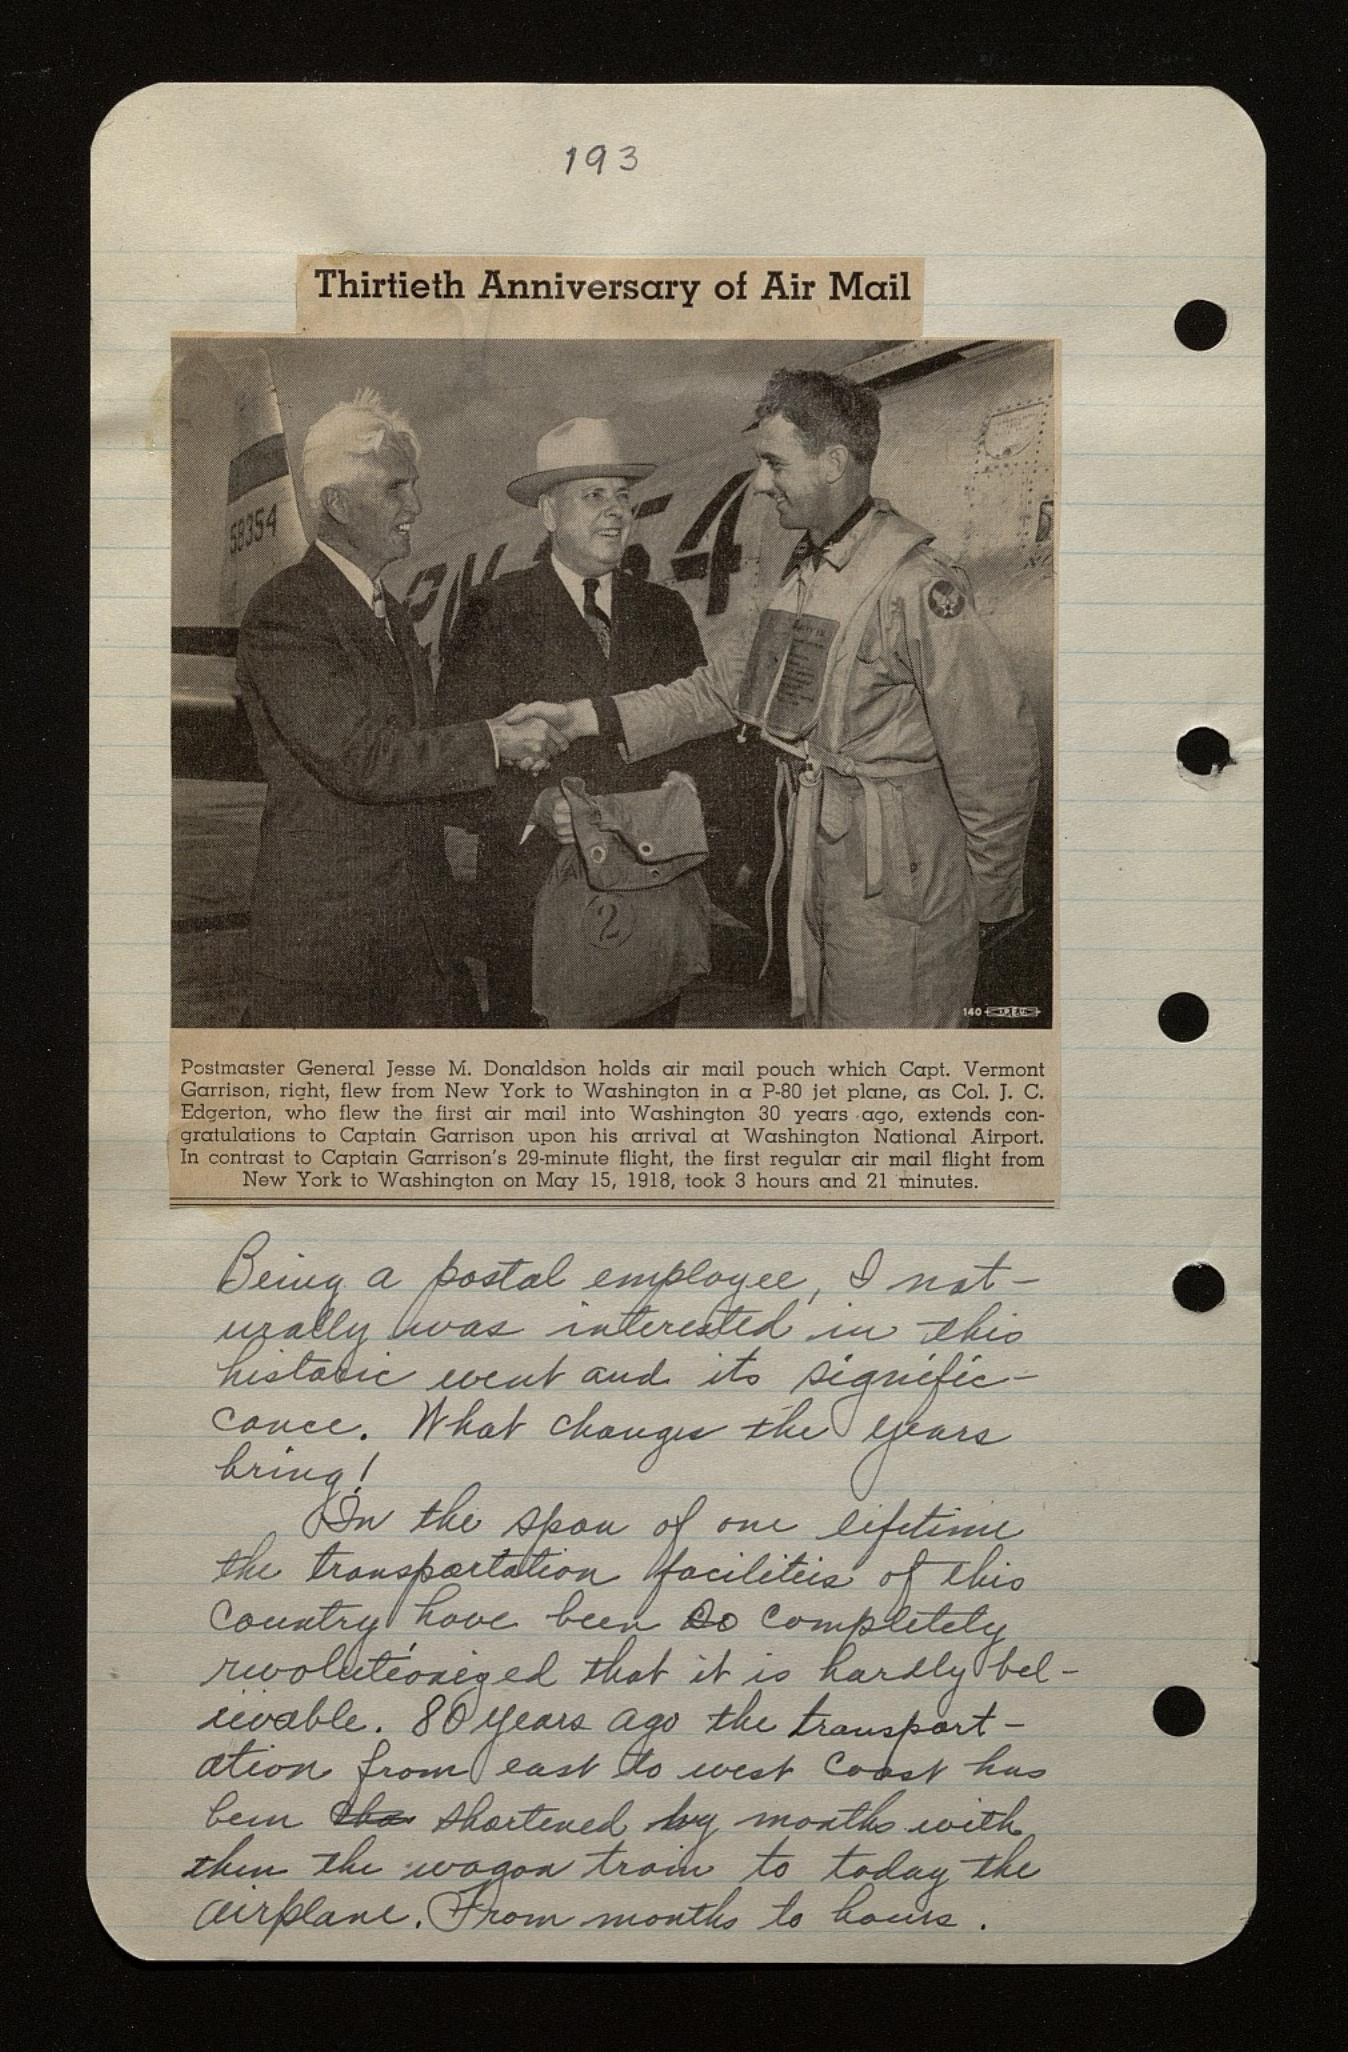 193
Thirtieth Anniversary of Air Mail
58354
54
2
140 I.P.E.U.
Postmaster General Jesse M. Donaldson holds air mail pouch which Capt. Vermont
Garrison, right, flew from New York to Washington in a P-80 jet plane, as Col. J. C.
Edgerton, who flew the first air mail into Washington 30 years ago, extends con-
gratulations to Captain Garrison upon his arrival at Washington National Airport.
In contrast to Captain Garrison's 29-minute flight, the first regular air mail flight from
New York to Washington on May 15, 1918, took 3 hours and 21 minutes.
Being a postal employee, I nat-
urally was interested in this
historic event and its signific-
cance. What changes the years
bring!
In the span of one lifetime
the transportation facilities of this
country have been so completely
revolutionized that it is hardly bel-
ievable. 80 years ago the transport-
ation from east to west coast has
been tha shortened by months with
then the wagon train to today the
airplane. From months to hours.